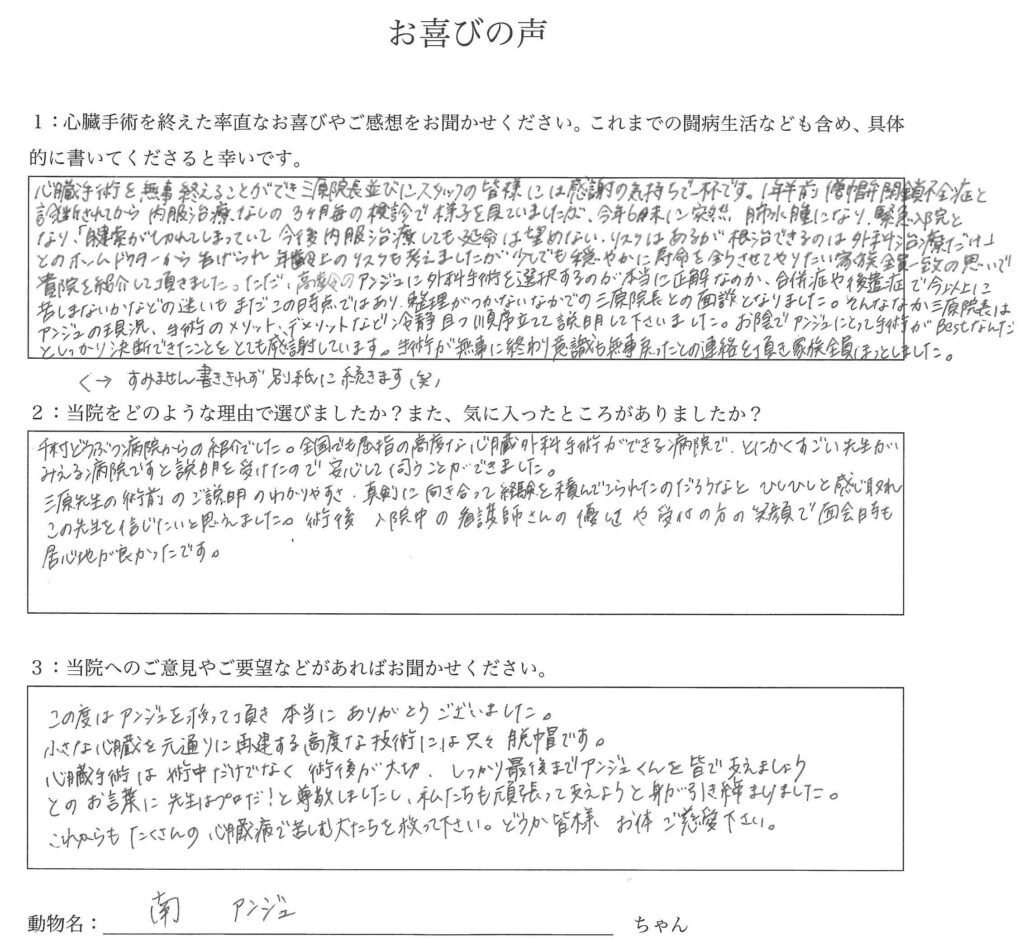 お喜びの声
1：心臓手術を終えた率直なお喜びやご感想をお聞かせください。これまでの闘病生活なども含め、具体
的に書いてくださると幸いです。
心臓手術を無事終えることができ三原院長並びにスタッフの皆様には感謝の気持ちで一杯です。1年半前 僧帽弁閉鎖不全症と
診断されてから 内服治療なしの3ヶ月毎の検診で様子を見ていましたが、今年 に突然 肺水腫になり 緊急入院と
なり、「腱索が切れてしまっていて 今後 内服治療しても延命は望めない、リスクはあるが根治できるのは外科治療だけ」
とのホームドクターから告げられ 年齢上のリスクも考えましたが少しでも穏やかに寿命を全うさせてやりたい家族全員一致の思いで
貴院を紹介して頂きました。ただ、高齢のアンジュに外科手術を選択するのが本当に正解なのか、合併症や後遺症で今以上に
苦しまないかなどの迷いも まだこの時点ではあり、整理がつかないなかでの三原院長との面談となりました。そんななか三原院長は
アンジュの現況、手術のメリット、デメリットなど冷静且つ順序立てて説明して下さいました。お陰でアンジュにとって手術がBestなんだ
としっかり決断できたことをとても感謝しています。手術が無事に終わり意識も無事戻ったとの連絡を頂き家族全員ほっとしました。
く→ すみません書ききれず 別紙に続きます(笑)
2：当院をどのような理由で選びましたか？また、気に入ったところがありましたか？
千村どうぶつ病院からの紹介でした。全国でも屈指の高度な心臓外科手術ができる病院で、とにかくすごい先生が
みえる病院ですと説明を受けたので安心して伺うことができました。
三原先生の術前のご説明のわかりやすさ、真剣に向き合って経験を積んでこられたのだろうなと ひしひしと感じ取れ
この先生を信じたいと思えました。術後 入院中の看護師さんの優しさや受付の方の笑顔で面会時も
居心地が良かったです。
3：当院へのご意見やご要望などがあればお聞かせください。
この度はアンジュを救って頂き 本当に ありがとう ございました。
小さな心臓を元通りに再建する高度な技術には只々 脱帽です。
心臓手術は術中だけでなく 術後が大切、しっかり最後までアンジュくんを皆で支えましょう
とのお言葉に 先生はプロだ！と尊敬しましたし、私たちも頑張って支えようと身が引き締まりました。
これからも たくさんの心臓病で苦しむ犬たちを救って下さい。どうか皆様 お体 ご慈愛下さい。
動物名： 南 アンジュ ちゃん